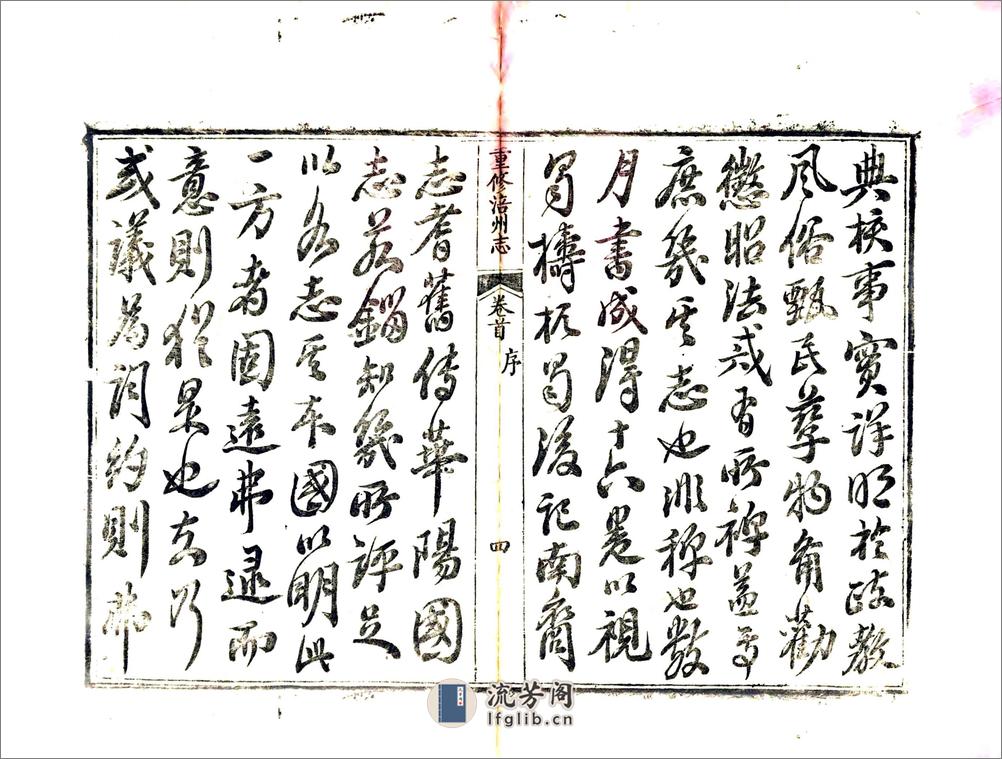 典核事實詳明於政教
風俗甄民孳物有勸
懲昭法戒有所裨益
庶幾其志也 稱也數
月書成得十六卷以視
蜀檮杌蜀後記南裔
重修涪州志
卷首
序
四
志耆舊傳華陽國
志若鎦知幾所評足
以名志其本國以明此
一方者固遠弗逮而
意則猶是也
或議為詞約則弗
流芳阁
lfglib.cn